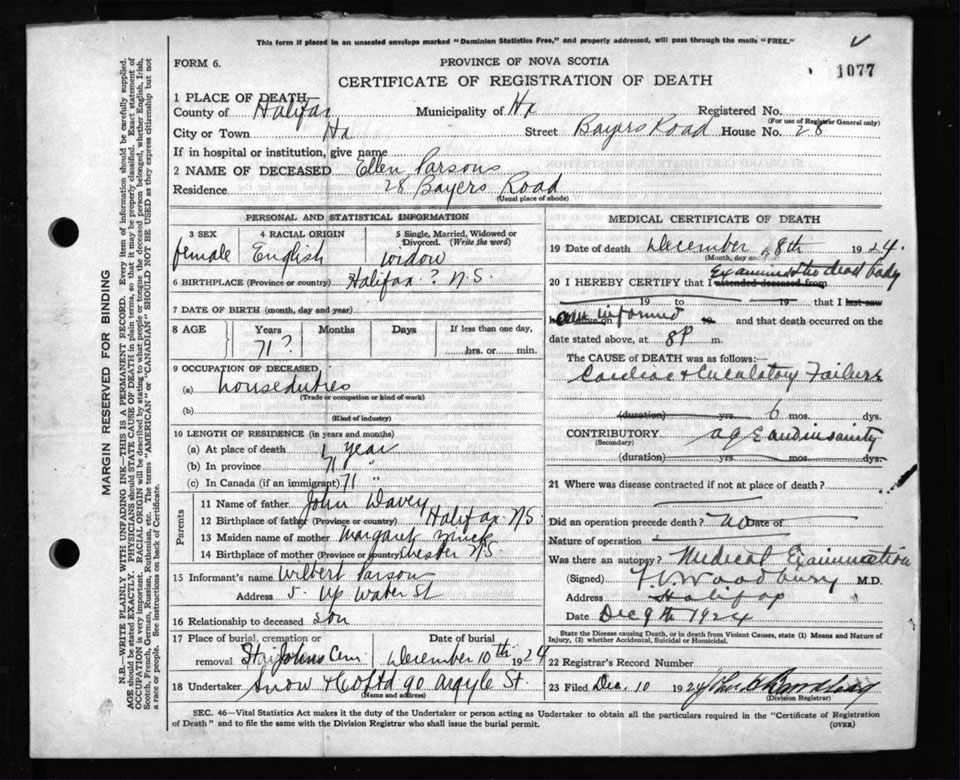 This form if placed in an unsealed envelope marked "Dominion Statistics Free," and properly addressed, will pass through the mails "FREE."
1077
FORM 6.
PROVINCE OF NOVA SCOTIA
CERTIFICATE OF REGISTRATION OF DEATH
1 PLACE OF DEATH
County of Halifax Municipality of Hx Registered No.
(For use of Registrar General only)
City or Town Hx Street Bayers Road House No. 28
If in hospital or institution, give name
2 NAME OF DECEASED Ellen Parsons
Residence 28 Bayers Road
(Usual place of abode)
PERSONAL AND STATISTICAL INFORMATION
3 SEX 4 RACIAL ORIGIN 5 Single, Married, Widowed or Divorced. (Write the word)
female English widow
6 BIRTHPLACE (Province or country) Halifax ? N.S.
7 DATE OF BIRTH (month, day and year)
8 AGE Years Months Days If less than one day,
71 ? hrs. or min.
9 OCCUPATION OF DECEASED
(a) house duties
(Trade or occupation or kind of work)
(b)
(Kind of industry)
10 LENGTH OF RESIDENCE (in years and months)
(a) At place of death 1 year
(b) In province 71 "
(c) In Canada (if an immigrant) 71 "
Parents
11 Name of father John Davey
12 Birthplace of father (Province or country) Halifax N.S.
13 Maiden name of mother Margaret
14 Birthplace of mother (Province or country) Chester N.S.
15 Informant's name Wilbert Parson
Address 5 Up Water St
16 Relationship to deceased son
17 Place of burial, cremation or removal Date of burial
St Johns Cem December 10th 1924
18 Undertaker Snow & Co Ltd 90 Argyle St.
(Name and address)
MEDICAL CERTIFICATE OF DEATH
19 Date of death December 8th 1924.
(Month, day and year)
Examined the dead body
20 I HEREBY CERTIFY that I attended deceased from
19 to 19 that I last saw
am informed
19 and that death occurred on the
date stated above, at 8 P m.
The CAUSE of DEATH was as follows:
Cardiac & Circulatory Failure
(duration) yrs. 6 mos. dys.
CONTRIBUTORY age and insanity
(Secondary)
(duration) yrs. mos. dys.
21 Where was disease contracted if not at place of death?
Did an operation precede death? no Date of
Nature of operation
Was there an autopsy? Medical Examination
(Signed) Woodbury M.D.
Address Halifax
Date Dec 9th 1924
State the Disease causing Death, or in death from Violent Causes, state (1) Means and Nature of
Injury, (2) whether Accidental, Suicidal or Homicidal.
22 Registrar's Record Number
23 Filed Dec. 10 1924
(Division Registrar)
SEC. 46—Vital Statistics Act makes it the duty of the Undertaker or person acting as Undertaker to obtain all the particulars required in the "Certificate of Registration
of Death" and to file the same with the Division Registrar who shall issue the burial permit.
(OVER)
MARGIN RESERVED FOR BINDING
N.B.—WRITE PLAINLY WITH UNFADING INK—THIS IS A PERMANENT RECORD. Every item of information should be carefully supplied.
AGE should be stated EXACTLY. PHYSICIANS should STATE CAUSE OF DEATH in plain terms, so that it may be properly classified. Exact statement of
OCCUPATION is very important. RACIAL ORIGIN will be described by stating to what people or tongue the deceased person belonged, whether English, Irish,
Scotch, French, German, Russian, Ruthenian, etc. The terms "AMERICAN" or "CANADIAN" SHOULD NOT BE USED as they express citizenship but not
a race or people. See instructions on back of Certificate.